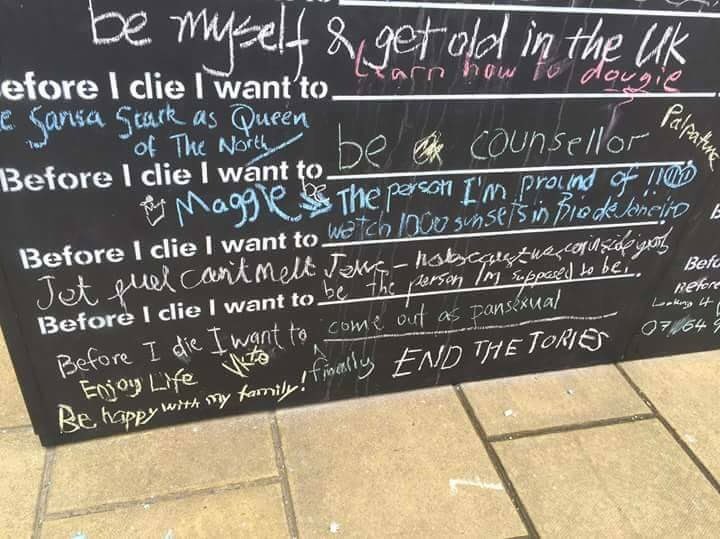 be myself & get old in the UK
Learn how to dougie
efore I die I want to
e Sansa Stark as Queen
of The North
be a counsellor
Palpatine
Before I die I want to
Maggie
be The person I'm proud of !!
watch 1000 sunsets in Rio de Janeiro
Before I die I want to
Jet fuel can't melt Jews - holocaust was inside
be the person I'm supposed to be.
Before I die I want to
Before I die I want to
come out as pansexual
finally
Enjoy Life
END THE TORIES
Be happy with my family!
Befo
Before
Looking
07 64